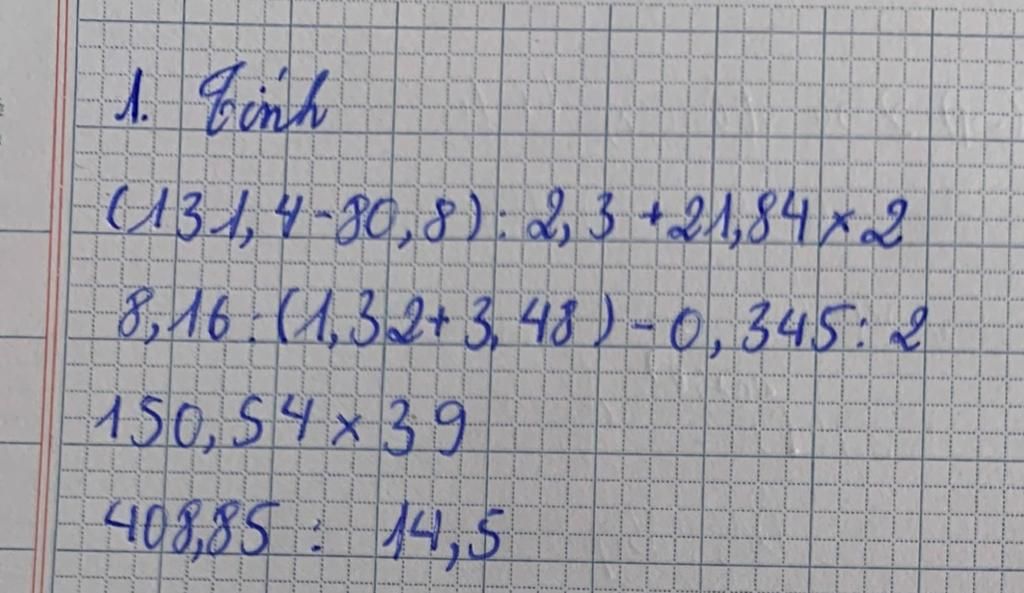 1. Tính
(131,4-80,8) : 2,3 + 21,84 x 2
8,16 : (1,32+3,48) - 0,345 : 2
150,54 x 39
408,85 : 14,5